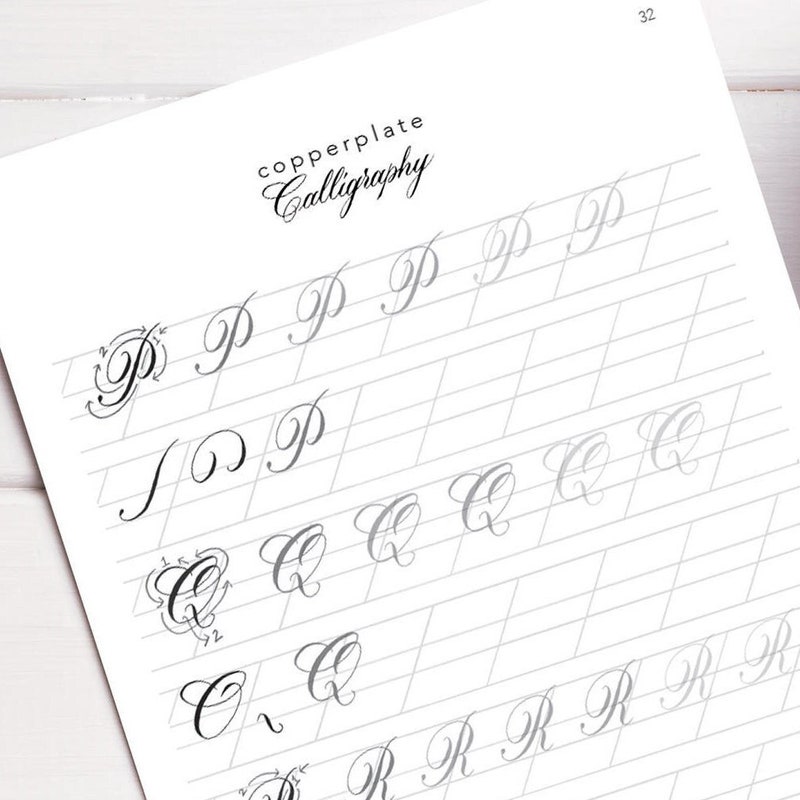 32
copperplate
Calligraphy
2 1
P P P P P P
P
1
Q Q Q Q Q Q
2
Q
2 1
R R R R R R R